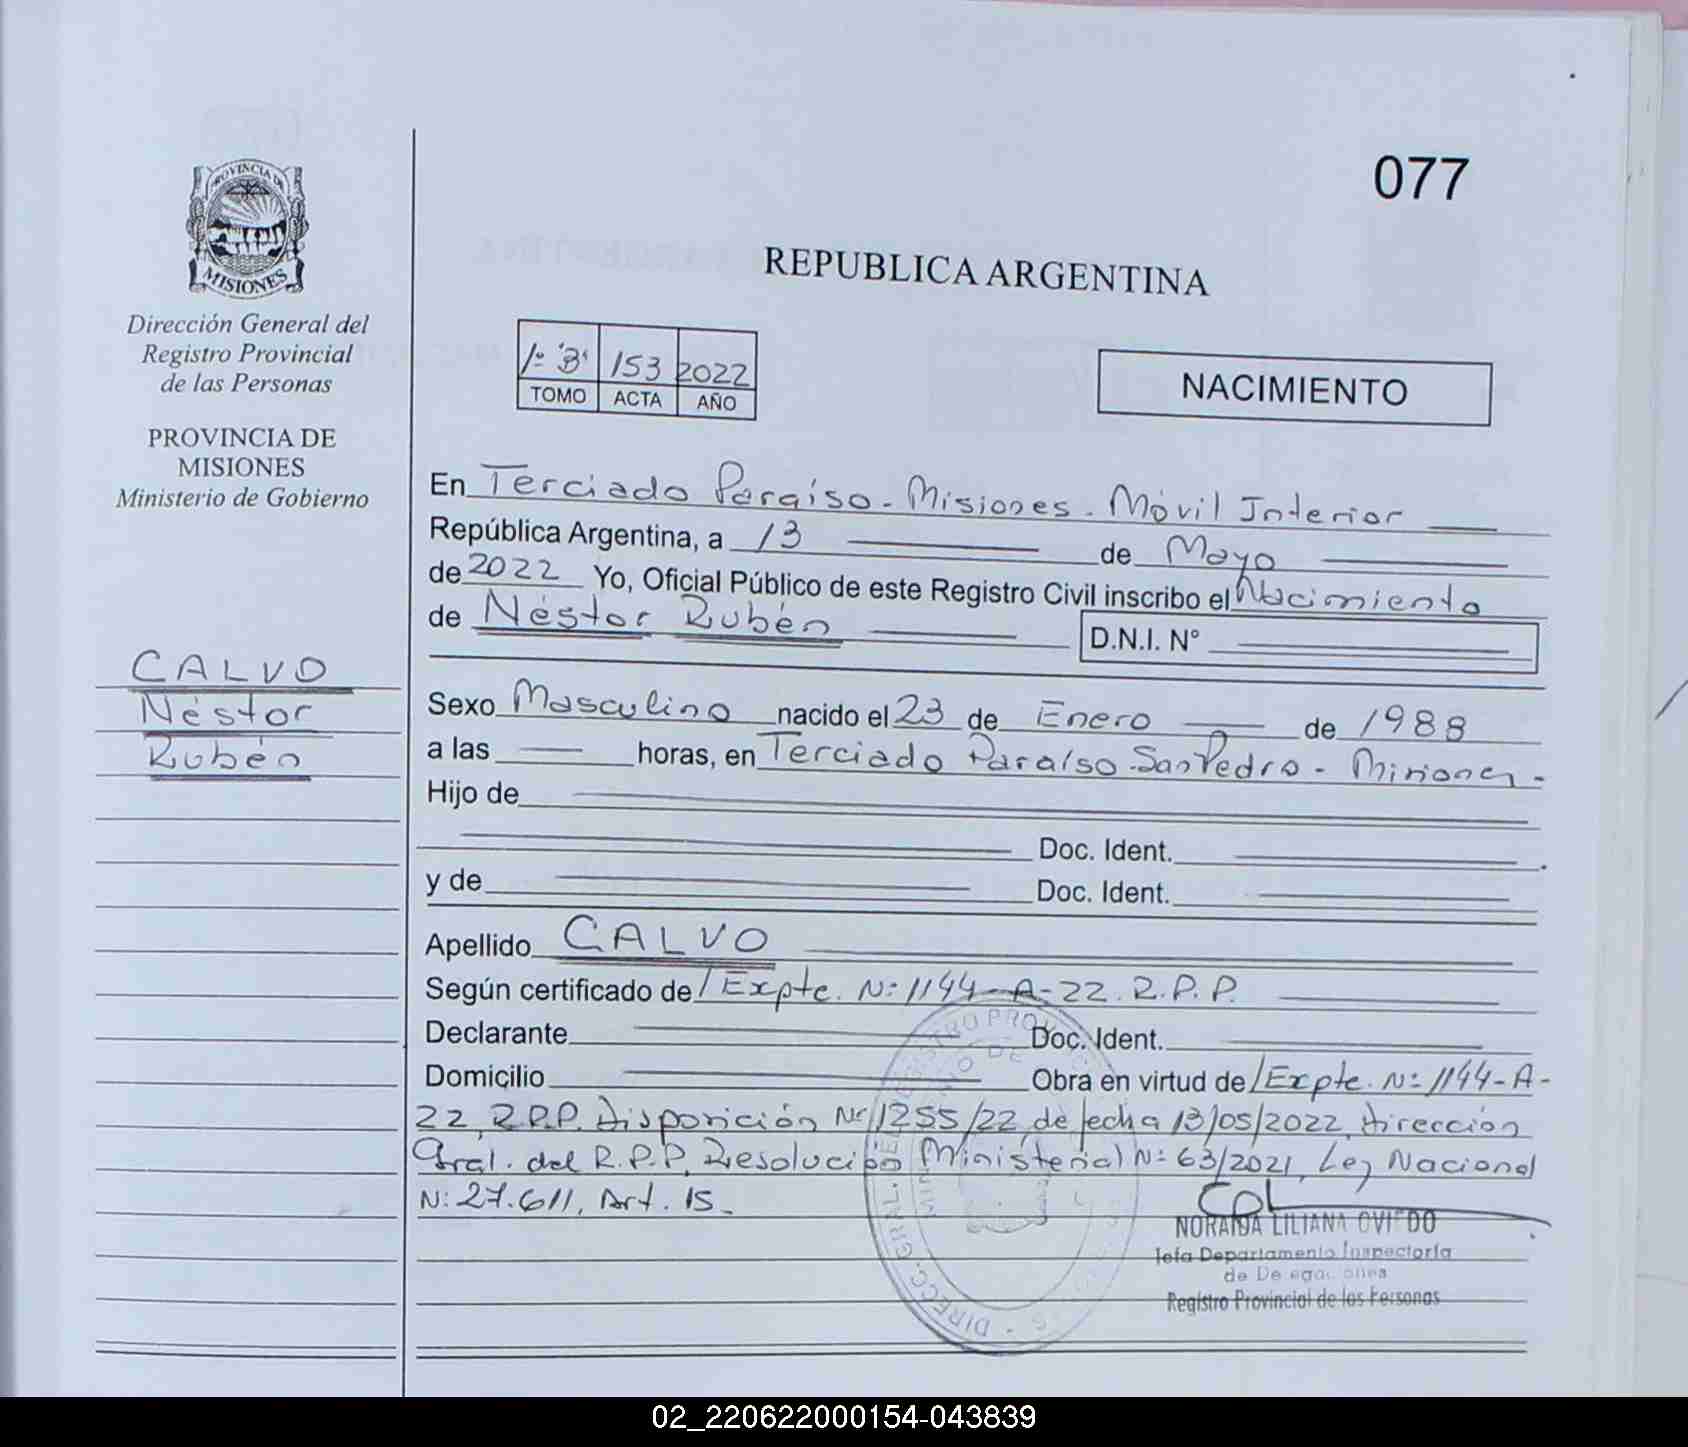 077
PROVINCIA DE
MISIONES
Dirección General del
Registro Provincial
de las Personas
PROVINCIA DE
MISIONES
Ministerio de Gobierno
CALVO
Néstor
Rubén
REPUBLICA ARGENTINA
1º "B" 153 2022
TOMO ACTA AÑO
NACIMIENTO
En Terciado Paraíso - Misiones - Móvil Interior
República Argentina, a 13 de Mayo
de 2022 Yo, Oficial Público de este Registro Civil inscribo el Nacimiento
de Néstor Rubén D.N.I. N°
Sexo Masculino nacido el 23 de Enero de 1988
a las horas, en Terciado Paraíso - San Pedro - Misiones -
Hijo de
Doc. Ident.
y de Doc. Ident.
Apellido CALVO
Según certificado de / Expte. Nº 1144-A-22. R.P.P.
Declarante Doc. Ident.
Domicilio Obra en virtud de / Expte. Nº 1144-A-
22, R.P.P. Disposición Nº 1255/22, de fecha 13/05/2022, Dirección
Gral. del R.P.P, Resolución Ministerial Nº 63/2021, Ley Nacional
Nº 27.611, Art. 15.
NORAIDA LILIANA OVIEDO
Jefa Departamento Inspectoría
de Delegaciones
Registro Provincial de las Personas
02_220622000154-043839